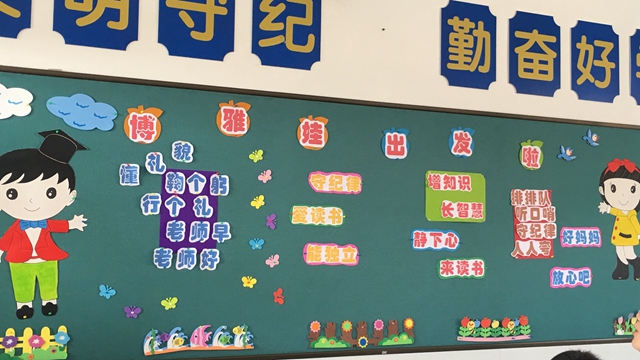 明守纪
勤奋好
博雅娃出发啦
懂礼貌
鞠个躬
行个礼
老师早
老师好
守纪律
爱读书
能独立
增知识
长智慧
静下心
来读书
排排队
听口哨
守纪律
人人夸
好妈妈
放心吧